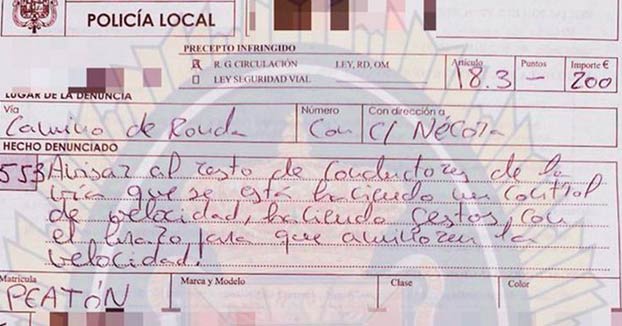 POLICÍA LOCAL
PRECEPTO INFRINGIDO
R. G CIRCULACIÓN LEY, RD, OM Artículo Puntos Importe €
LEY SEGURIDAD VIAL 18.3 - 200
LUGAR DE LA DENUNCIA
Vía Número Con dirección a
Camino de Ronda Con C/ Nécora
HECHO DENUNCIADO
553 Avisar al resto de conductores de la
vía que se está haciendo un control
de velocidad, haciendo gestos con
el brazo para que aminoren la
velocidad!
Matrícula Marca y Modelo Clase Color
PEATÓN